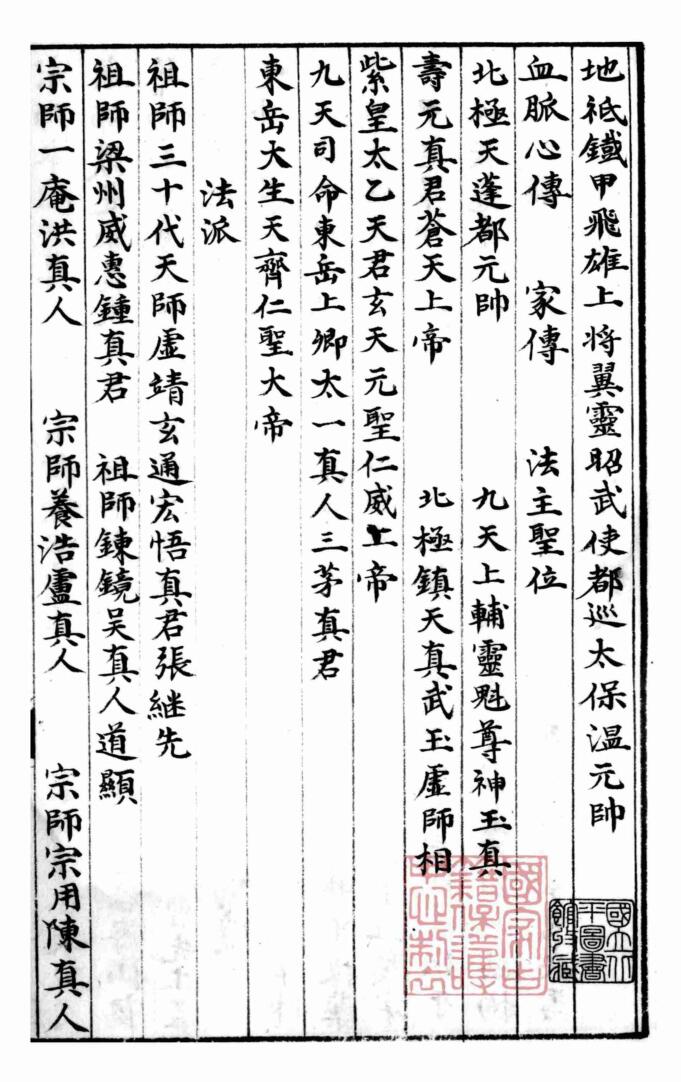 地祇鐵甲飛雄上将翼靈昭武使都巡太保温元帥
血脈心傳　家傳　法主聖位
北極天蓬都元帥　九天上輔靈魁尊神玉真
壽元真君蒼天上帝　北極鎮天真武玉虛師相
紫皇太乙天君玄天元聖仁威上帝
九天司命東岳上卿太一真人三茅真君
東岳大生天齊仁聖大帝
法派
祖師三十代天師虛靖玄通宏悟真君張継先
祖師梁州威惠鍾真君　祖師鍊鏡吴真人道顯
宗師一庵洪真人　宗師養浩盧真人　宗師宗用陳真人
國家古籍保護中心制作
國立北平圖書館收藏